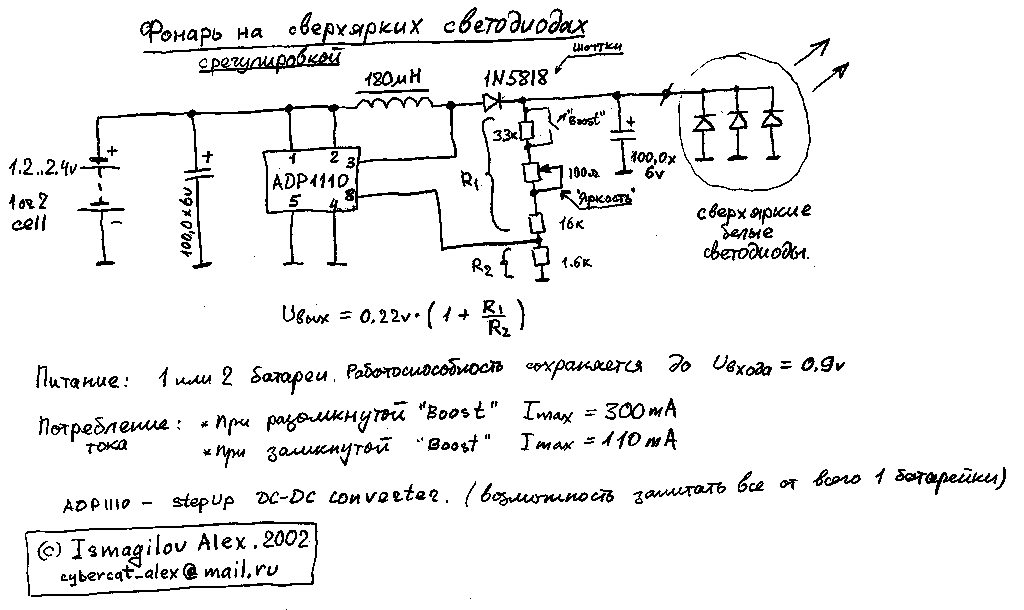 Фонарь на сверхярких светодиодах
с регулировкой
шоттки
180мН
1N5818
33к
"Boost"
+
100,0 x
6v
1.2..2.4v
+
1 or 2
cell
−
+
100,0 x 6v
1 2 3
ADP1110
8
5 4
R1
100Ω
"Яркость"
16к
R2
1.6к
сверхяркие
белые
светодиоды.
Uвых = 0.22v · (1 + R1/R2)
Питание: 1 или 2 батареи. Работоспособность сохраняется до Uвхода = 0.9v
Потребление: * При разомкнутой "Boost" Imax = 300mA
тока * При замкнутой "Boost" Imax = 110mA
ADP1110 – stepUp DC-DC converter. (возможность запитать все от всего 1 батарейки)
(c) Ismagilov Alex. 2002
cybercat_alex@mail.ru